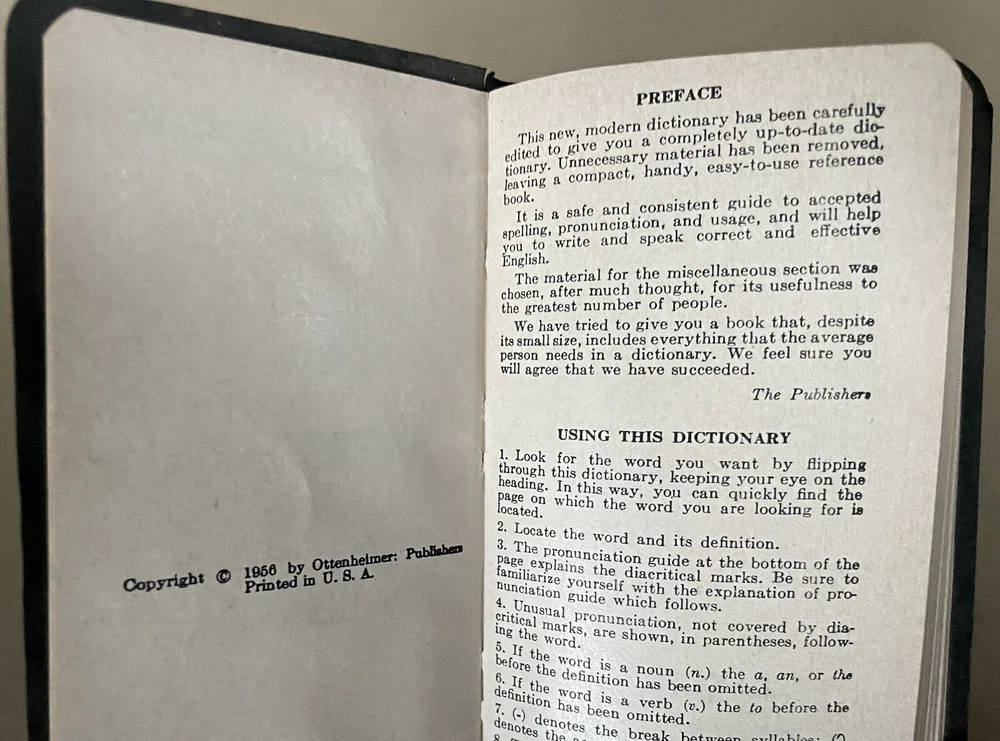 Copyright © 1956 by Ottenheimer: Publishers
Printed in U. S. A.
PREFACE
This new, modern dictionary has been carefully
edited to give you a completely up-to-date dic-
tionary. Unnecessary material has been removed,
leaving a compact, handy, easy-to-use reference
book.
It is a safe and consistent guide to accepted
spelling, pronunciation, and usage, and will help
you to write and speak correct and effective
English.
The material for the miscellaneous section was
chosen, after much thought, for its usefulness to
the greatest number of people.
We have tried to give you a book that, despite
its small size, includes everything that the average
person needs in a dictionary. We feel sure you
will agree that we have succeeded.
The Publishers
USING THIS DICTIONARY
1. Look for the word you want by flipping
through this dictionary, keeping your eye on the
heading. In this way, you can quickly find the
page on which the word you are looking for is
located.
2. Locate the word and its definition.
3. The pronunciation guide at the bottom of the
page explains the diacritical marks. Be sure to
familiarize yourself with the explanation of pro-
nunciation guide which follows.
4. Unusual pronunciation, not covered by dia-
critical marks, are shown, in parentheses, follow-
ing the word.
5. If the word is a noun (n.) the a, an, or the
before the definition has been omitted.
6. If the word is a verb (v.) the to before the
definition has been omitted.
7. (-) denotes the break between syllables;
denotes the
8.